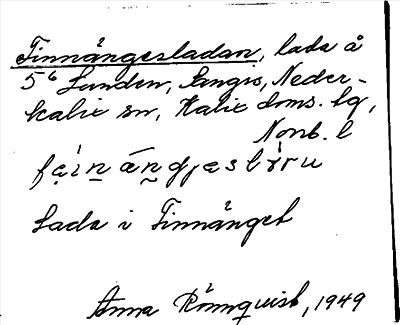 Finnängesladan, lada å
5⁶ Lunden, Sangis, Neder-
kalix sn, Kalix doms. lg,
Norrb. l
Lada i Finnänget
Anna Rönnquist, 1949